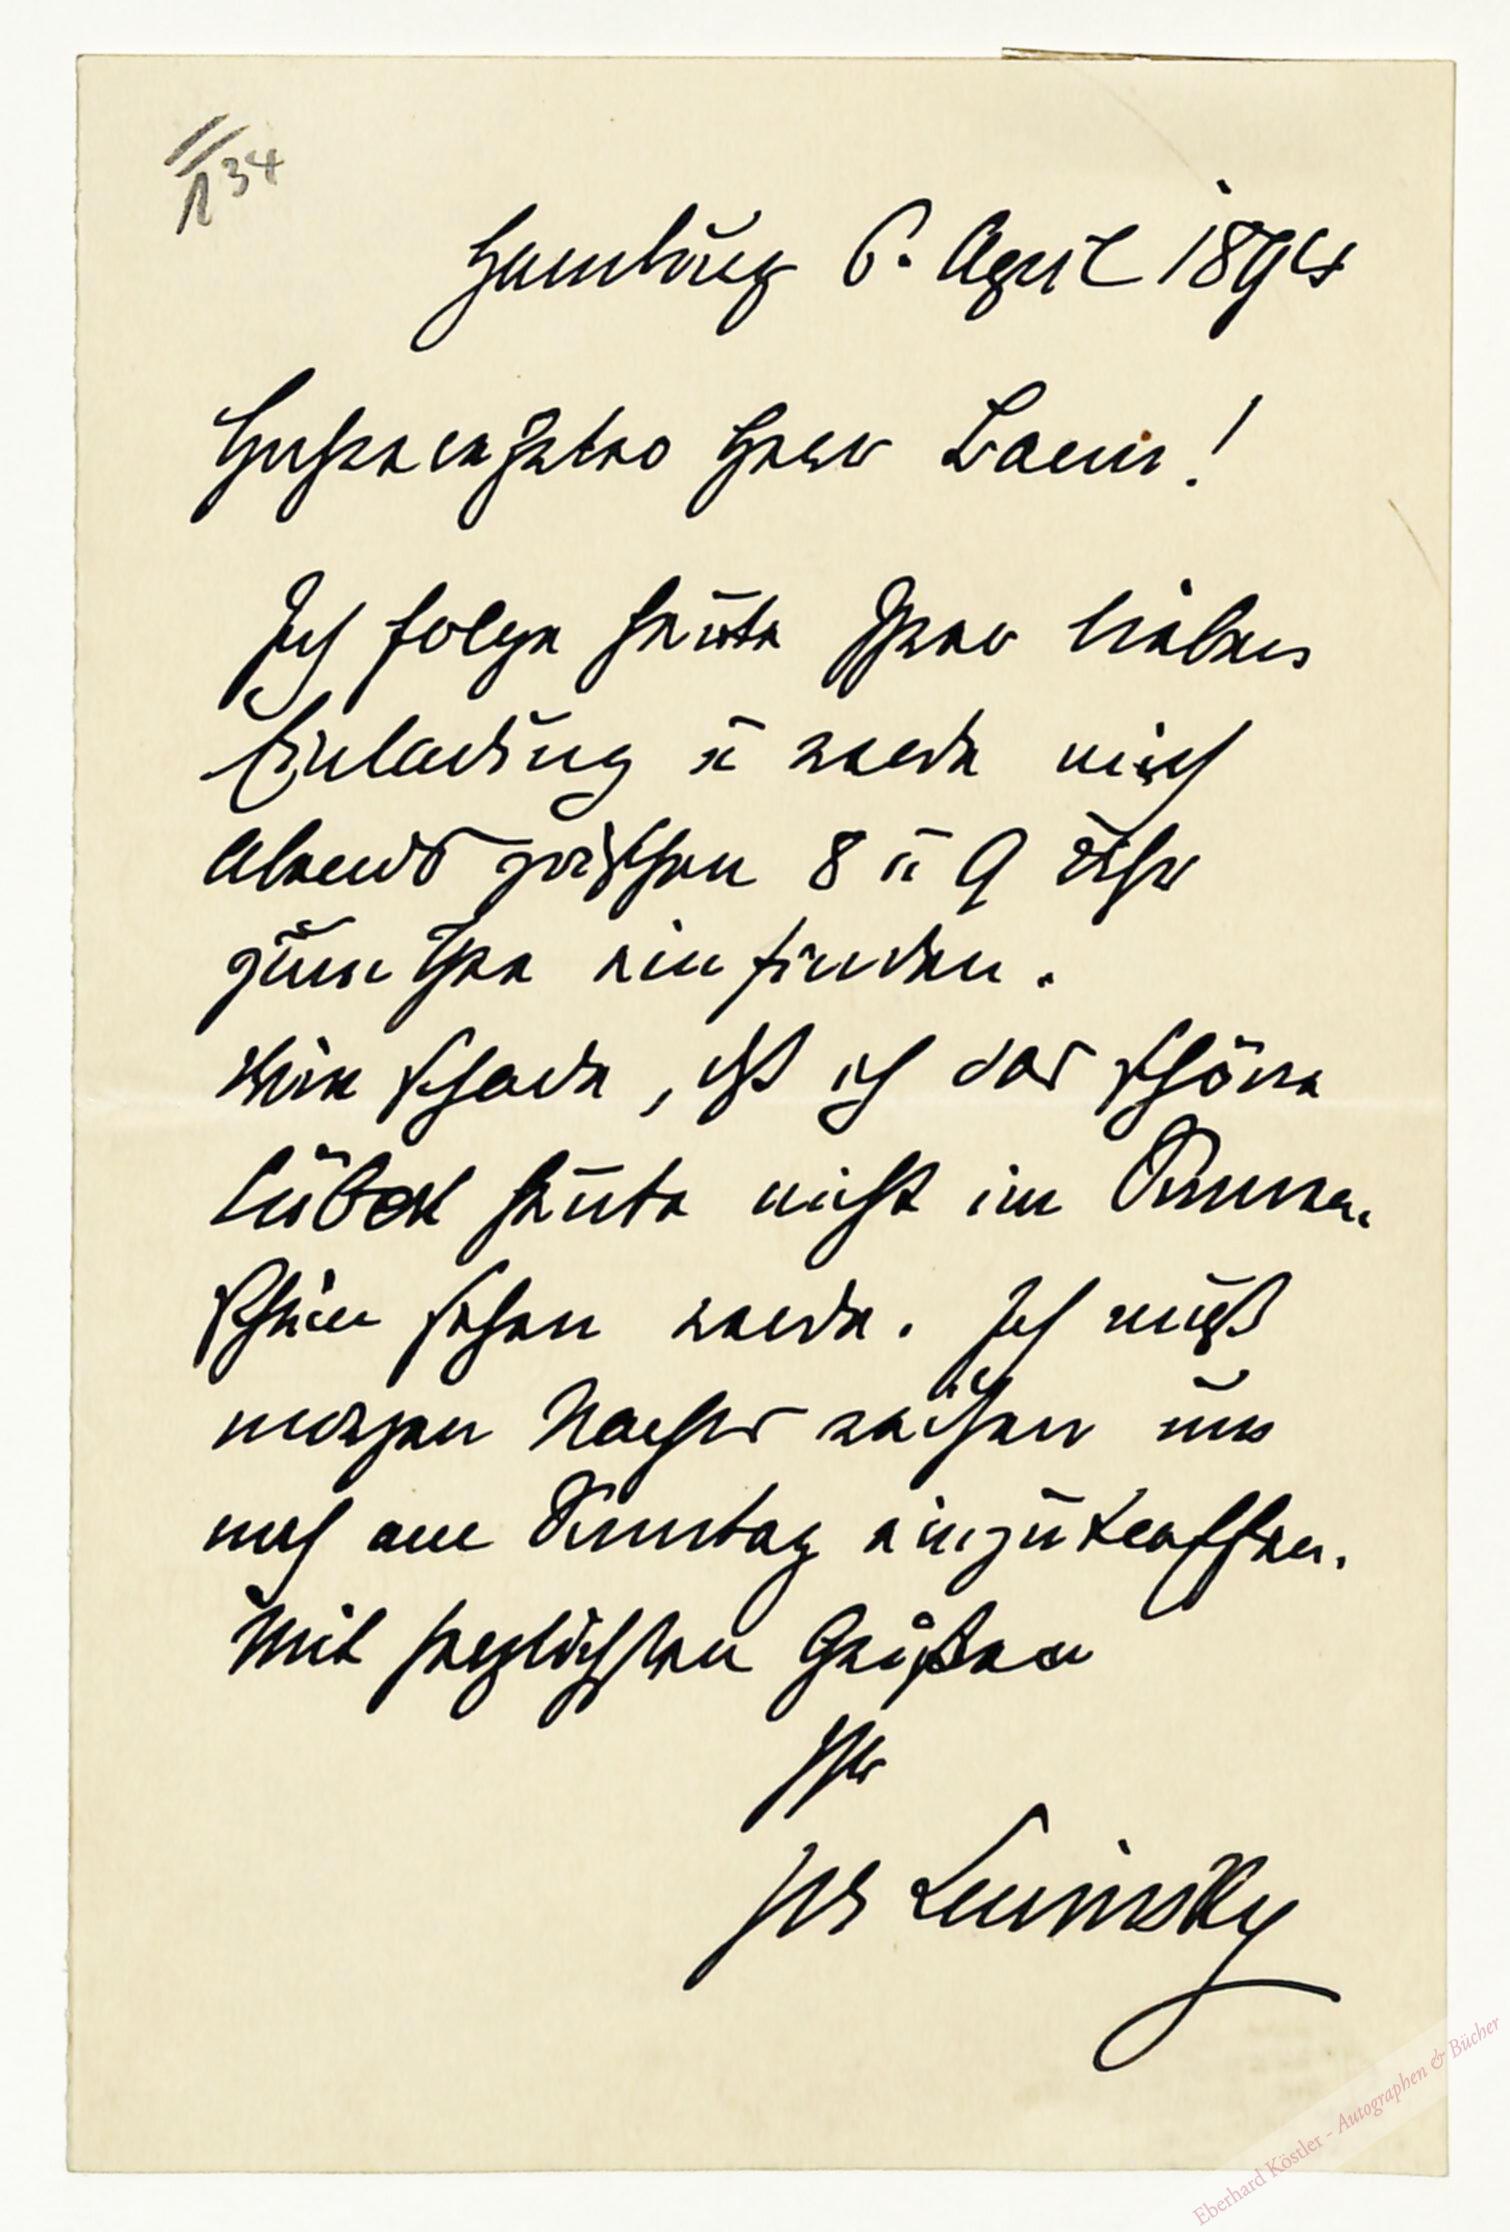 134
Hamburg 6. April 1894
Hochverehrter Herr Baron!
Ich folge heute Ihrer lieben
Einladung u werde mich
abends zwischen 8 u 9 Uhr
zum Thee einfinden.
Wie schade, daß ich das schöne
Lübeck heute nicht im Sonnen-
schein sehen werde. Ich muß
morgen Nachts reisen um
noch am Sonntag einzutreffen.
Mit herzlichsten Grüßen
Ihr
Jos Lewinsky
Eberhard Köstler - Autographen & Bücher